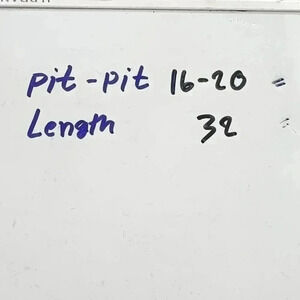 pit-pit 16-20 =
Length 32 =